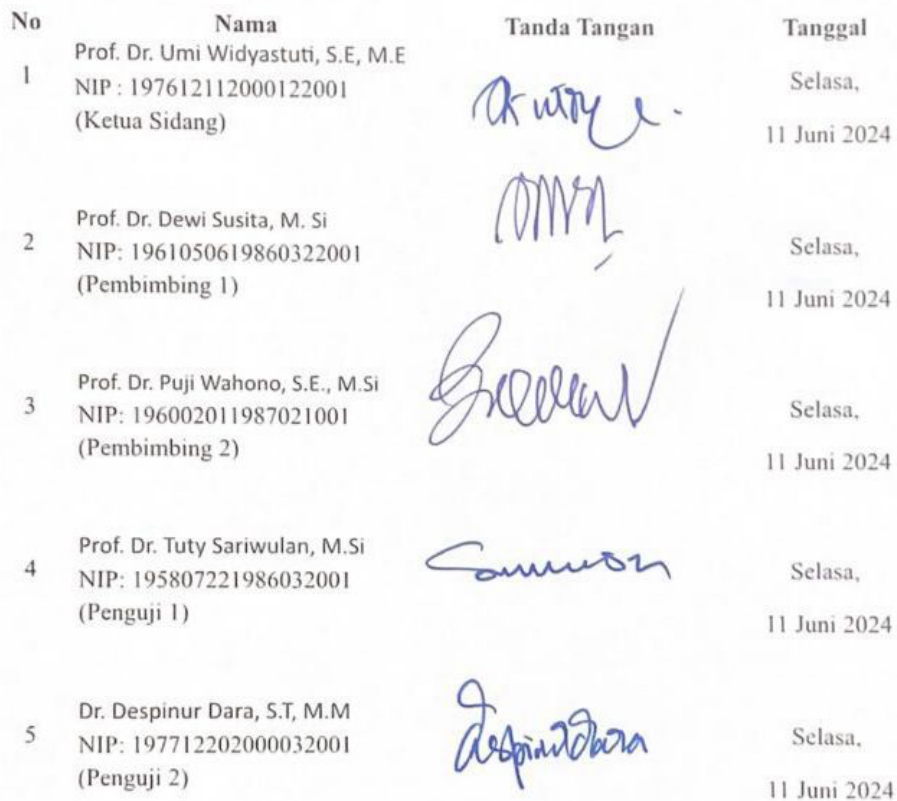 No Nama Tanda Tangan Tanggal
1 Prof. Dr. Umi Widyastuti, S.E, M.E
NIP : 197612112000122001
(Ketua Sidang)
Selasa,
11 Juni 2024
2 Prof. Dr. Dewi Susita, M. Si
NIP: 1961050619860322001
(Pembimbing 1)
Selasa,
11 Juni 2024
3 Prof. Dr. Puji Wahono, S.E., M.Si
NIP: 196002011987021001
(Pembimbing 2)
Selasa,
11 Juni 2024
4 Prof. Dr. Tuty Sariwulan, M.Si
NIP: 195807221986032001
(Penguji 1)
Selasa,
11 Juni 2024
5 Dr. Despinur Dara, S.T, M.M
NIP: 197712202000032001
(Penguji 2)
Selasa,
11 Juni 2024